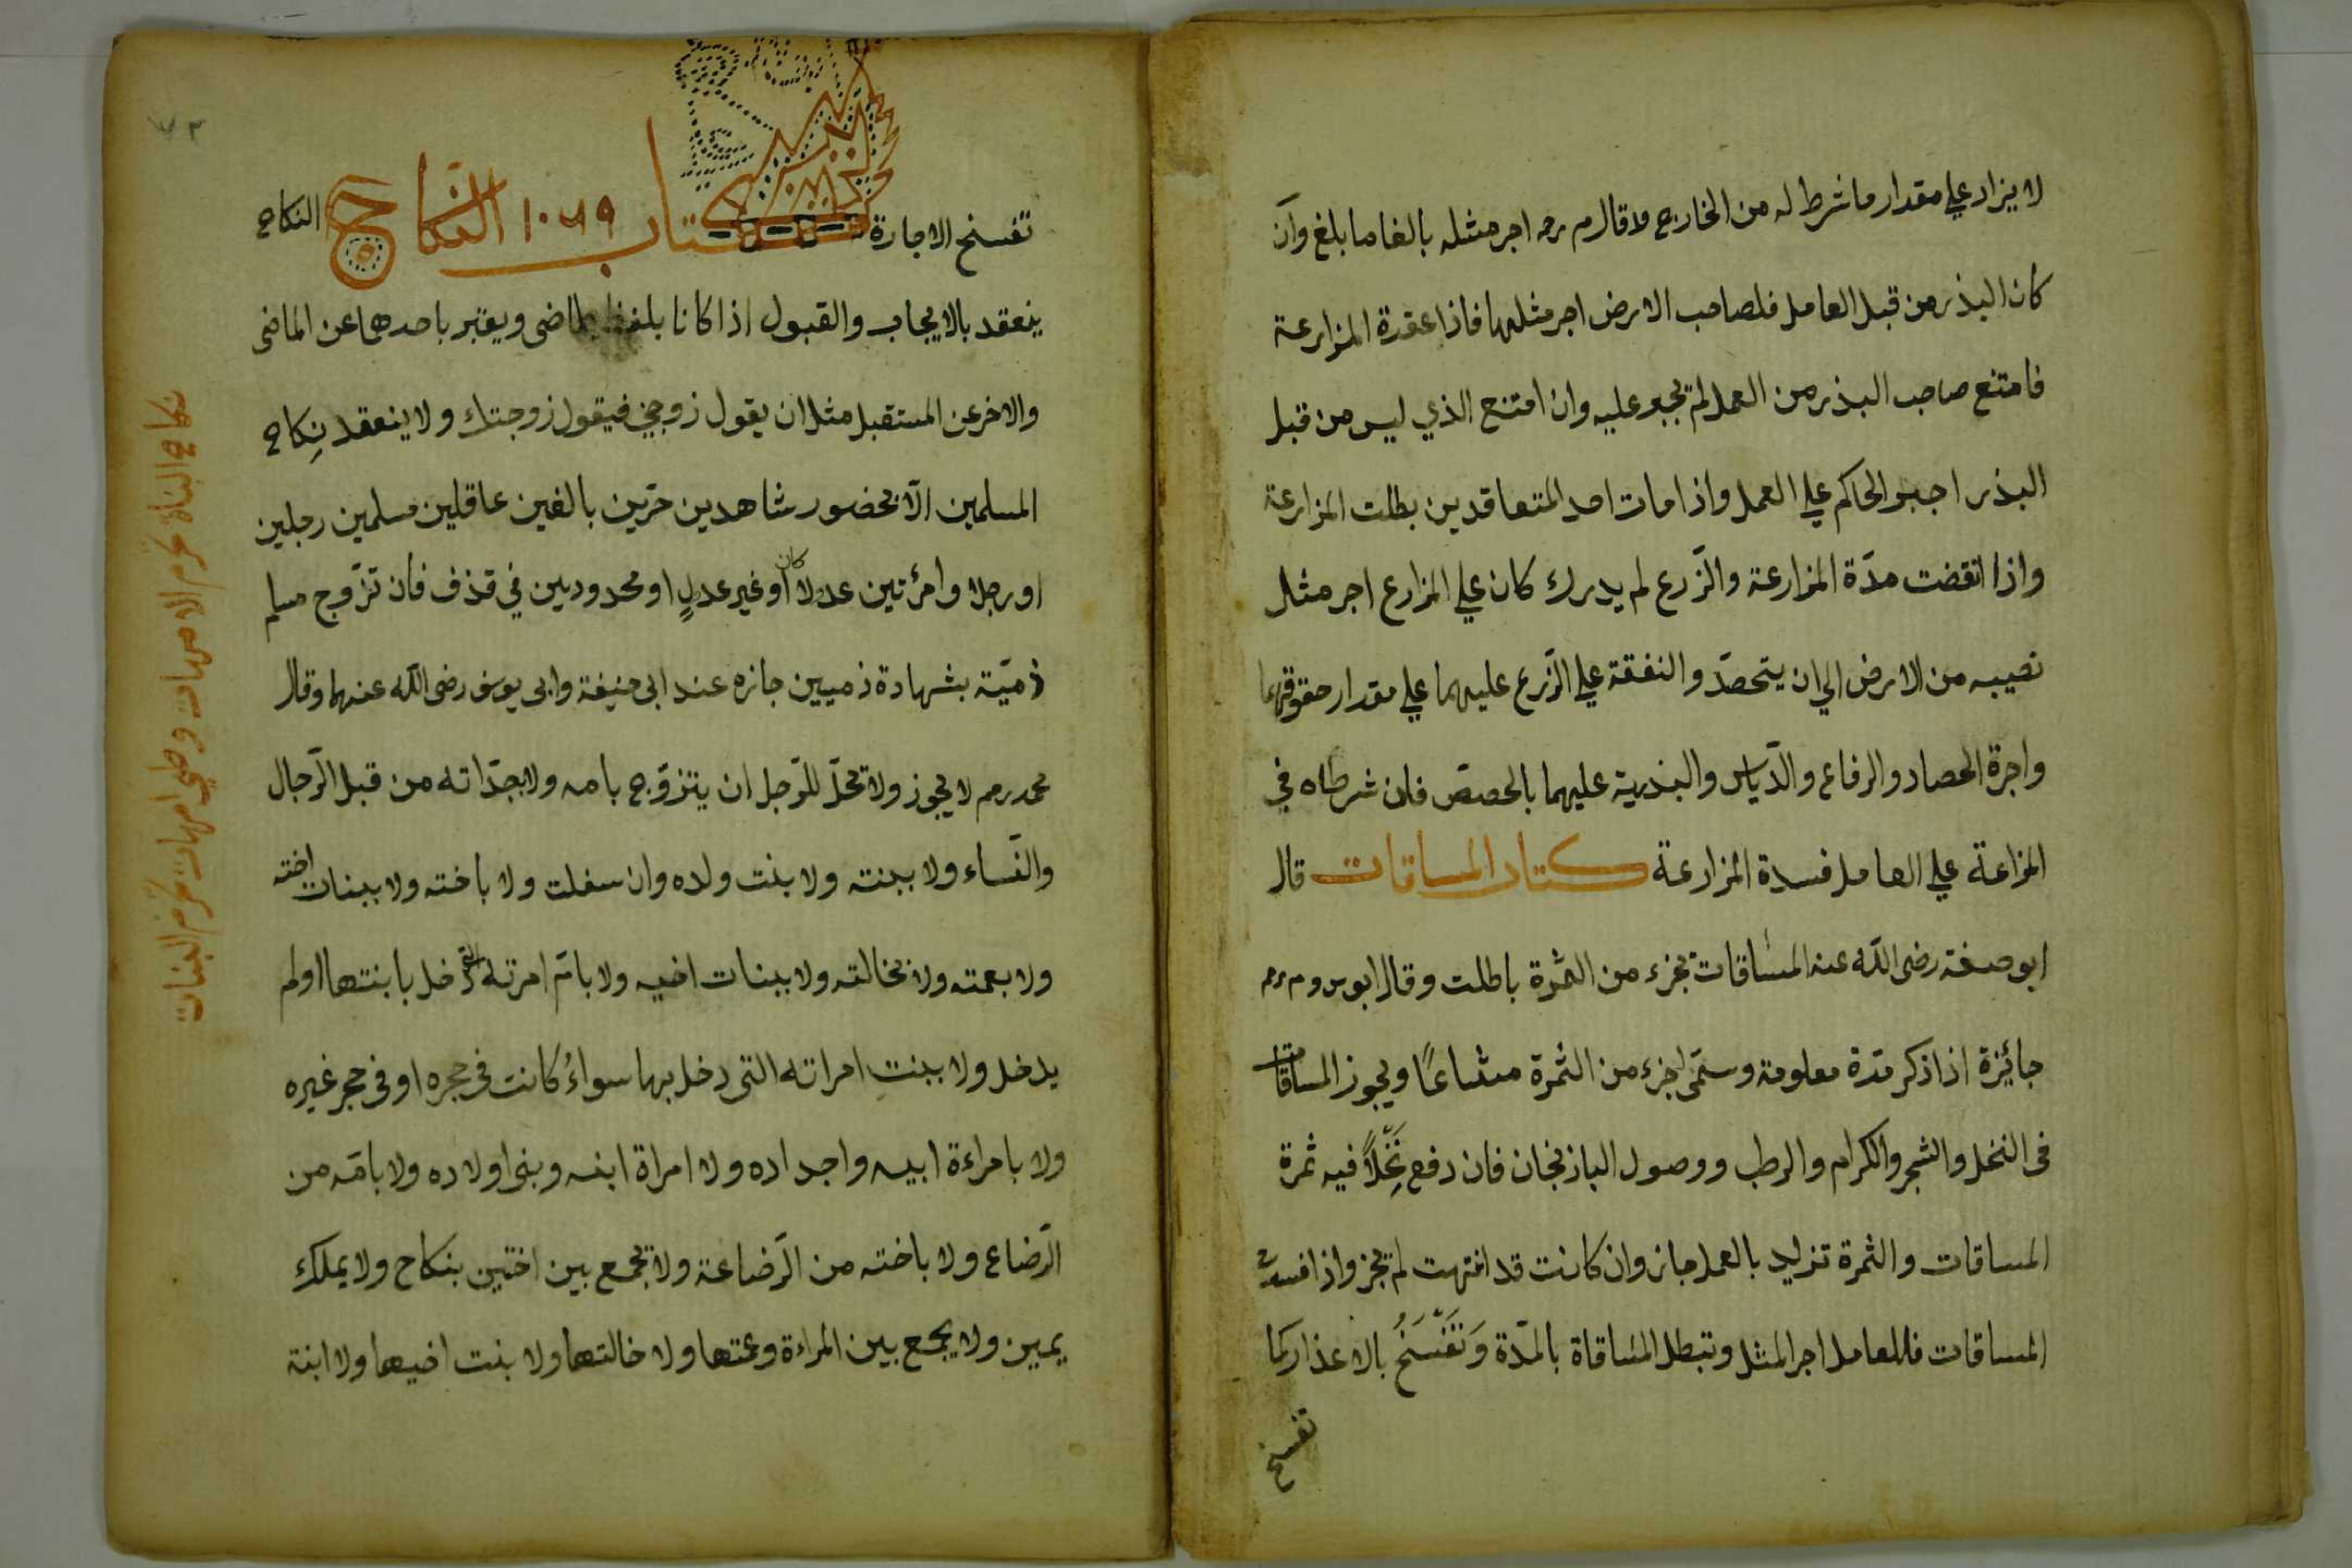 لا يزاد علي مقدار ما شرط له من الخارج ولا قال م رحه اجر مثله بالغا ما بلغ وان
كان البذر من قبل العامل فلصاحب الارض اجر مثلها فاذا عقدة المزارعة
فامتنع صاحب البذر من العمل لم يجبر عليه وان امتنع الذي ليس من قبل
البذر اجبر الحاكم علي العمل واذا مات احد المتعاقدين بطلت المزارعة
واذا انقضت مدّة المزارعة والزّرع لم يدرك كان علي المزارع اجر مثل
نصيبه من الارض الي ان يتحصدّ والنفقة علي الزّرع عليهما علي مقدار حقوقهما
واجرة الحصاد والرفاع والدّياس والبذرية عليهما بالحصصّ فان شرطاه في
المزاعة علي العامل فسدة المزارعة كتاب المساقات قال
ابو حنفة رضى اللّه عنه المساقات بجزء من الثمرة باطلت وقال ابو س وم رحم
جائزة اذا ذكر مدّة معلومة وسمّى جزء من الثمرة مشاعًا ويجوز المساقات
فى النخل والشجر والكرام والرطب ووصول الباذنجان فان دفع نَخْلًا فيه ثمرة
المساقات والثمرة تزليد بالعمل جاز وان كانت قد انتهت لم يجز واذا فسدت
المساقات فللعامل اجر المثل وتبطل المساقاة بالمدّة وَتَفْسَخُ بالاعذار كما
تفسخ
تفسخ الاجارة كتاب ١٠٦٩ النكاح النكاح
ينعقد بالايجاب والقبول اذا كانا بلفظ بماضى ويعتبر باحدهما عن الماضى
والاخر عن المستقبل مثل ان يقول زوجني فيقول زوجتك ولا ينعقد نِكاح
المسلمين الّا بحضور شاهدين حرّين بالغين عاقلين مسلمين رجلين
او رجلا وامرئتين عدلا كان او غير عدلٍ او محدودين في قذف فان تزوّج مسلم
ذميّة بشهادة ذميين جازه عند ابى حنيفة وابى يوسف رضى اللّه عنهما وقال
محمد رحم لا يجوز ولا تحلّ للرّجل ان يتزوّج بامه ولا بجدّاته من قبل الرّجال
والنّساء ولا ببنته ولا بنت ولده وان سفلت ولا باخته ولا ببنات اخته
ولا بعمته ولا بخالته ولا ببنات اخيه ولا بامّ امرته التى دخل بابنتها اولم
يدخل ولا ببنت امراته التى دخل بها سواءٌ كانت فى حجره او فى حجر غيره
ولا بامراءة ابيه واجداده ولا امراة ابنه وبنى اولاده ولا بامّه من
الرّضاع ولا باخته من الرّضاعة ولا تجمع بين اختين بنكاح ولا يملك
يمين ولا يجمع بين المراءة وعمتها ولا خالتها ولا بنت اخيها ولا ابنة
نكاح البناة يحرم الامهات وطي امهات يحرم البنات
٧٣